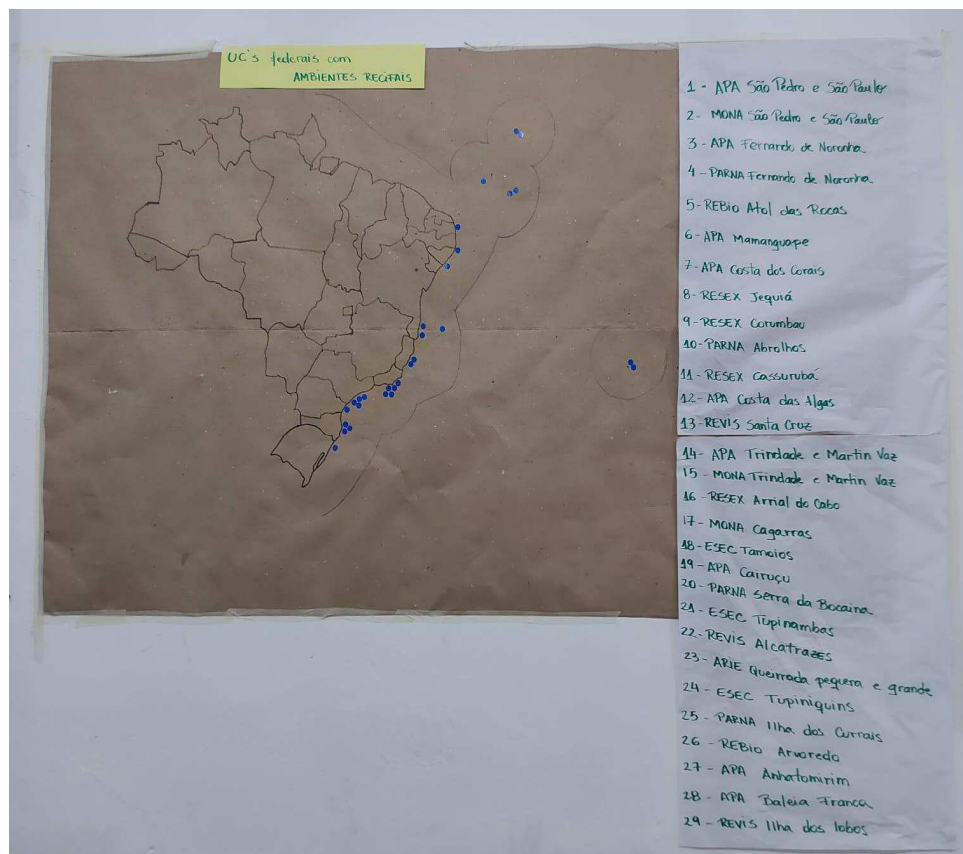 UC's federais com
AMBIENTES RECIFAIS
1 - APA São Pedro e São Paulo
2- MONA São Pedro e São Paulo
3 - APA Fernando de Noronha
4 - PARNA Fernando de Noronha
5 - REBio Atol das Rocas
6 - APA Mamanguape
7 - APA Costa dos Corais
8 - RESEX Jequiá
9 - RESEX Corumbau
10 - PARNA Abrolhos
11 - RESEX Cassurubá
12 - APA Costa das Algas
13 - REVIS Santa Cruz
14 - APA Trindade e Martin Vaz
15 - MONA Trindade e Martin Vaz
16 - RESEX Arrial do Cabo
17 - MONA Cagarras
18 - ESEC Tamoios
19 - APA Cairuçu
20 - PARNA Serra da Bocaina
21 - ESEC Tupinambas
22 - REVIS Alcatrazes
23 - ARIE Queimada pequena e grande
24 - ESEC Tupiniquins
25 - PARNA Ilha dos Currais
26 - REBio Arvoredo
27 - APA Anhatomirim
28 - APA Baleia Franca
29 - REVIS Ilha dos lobos